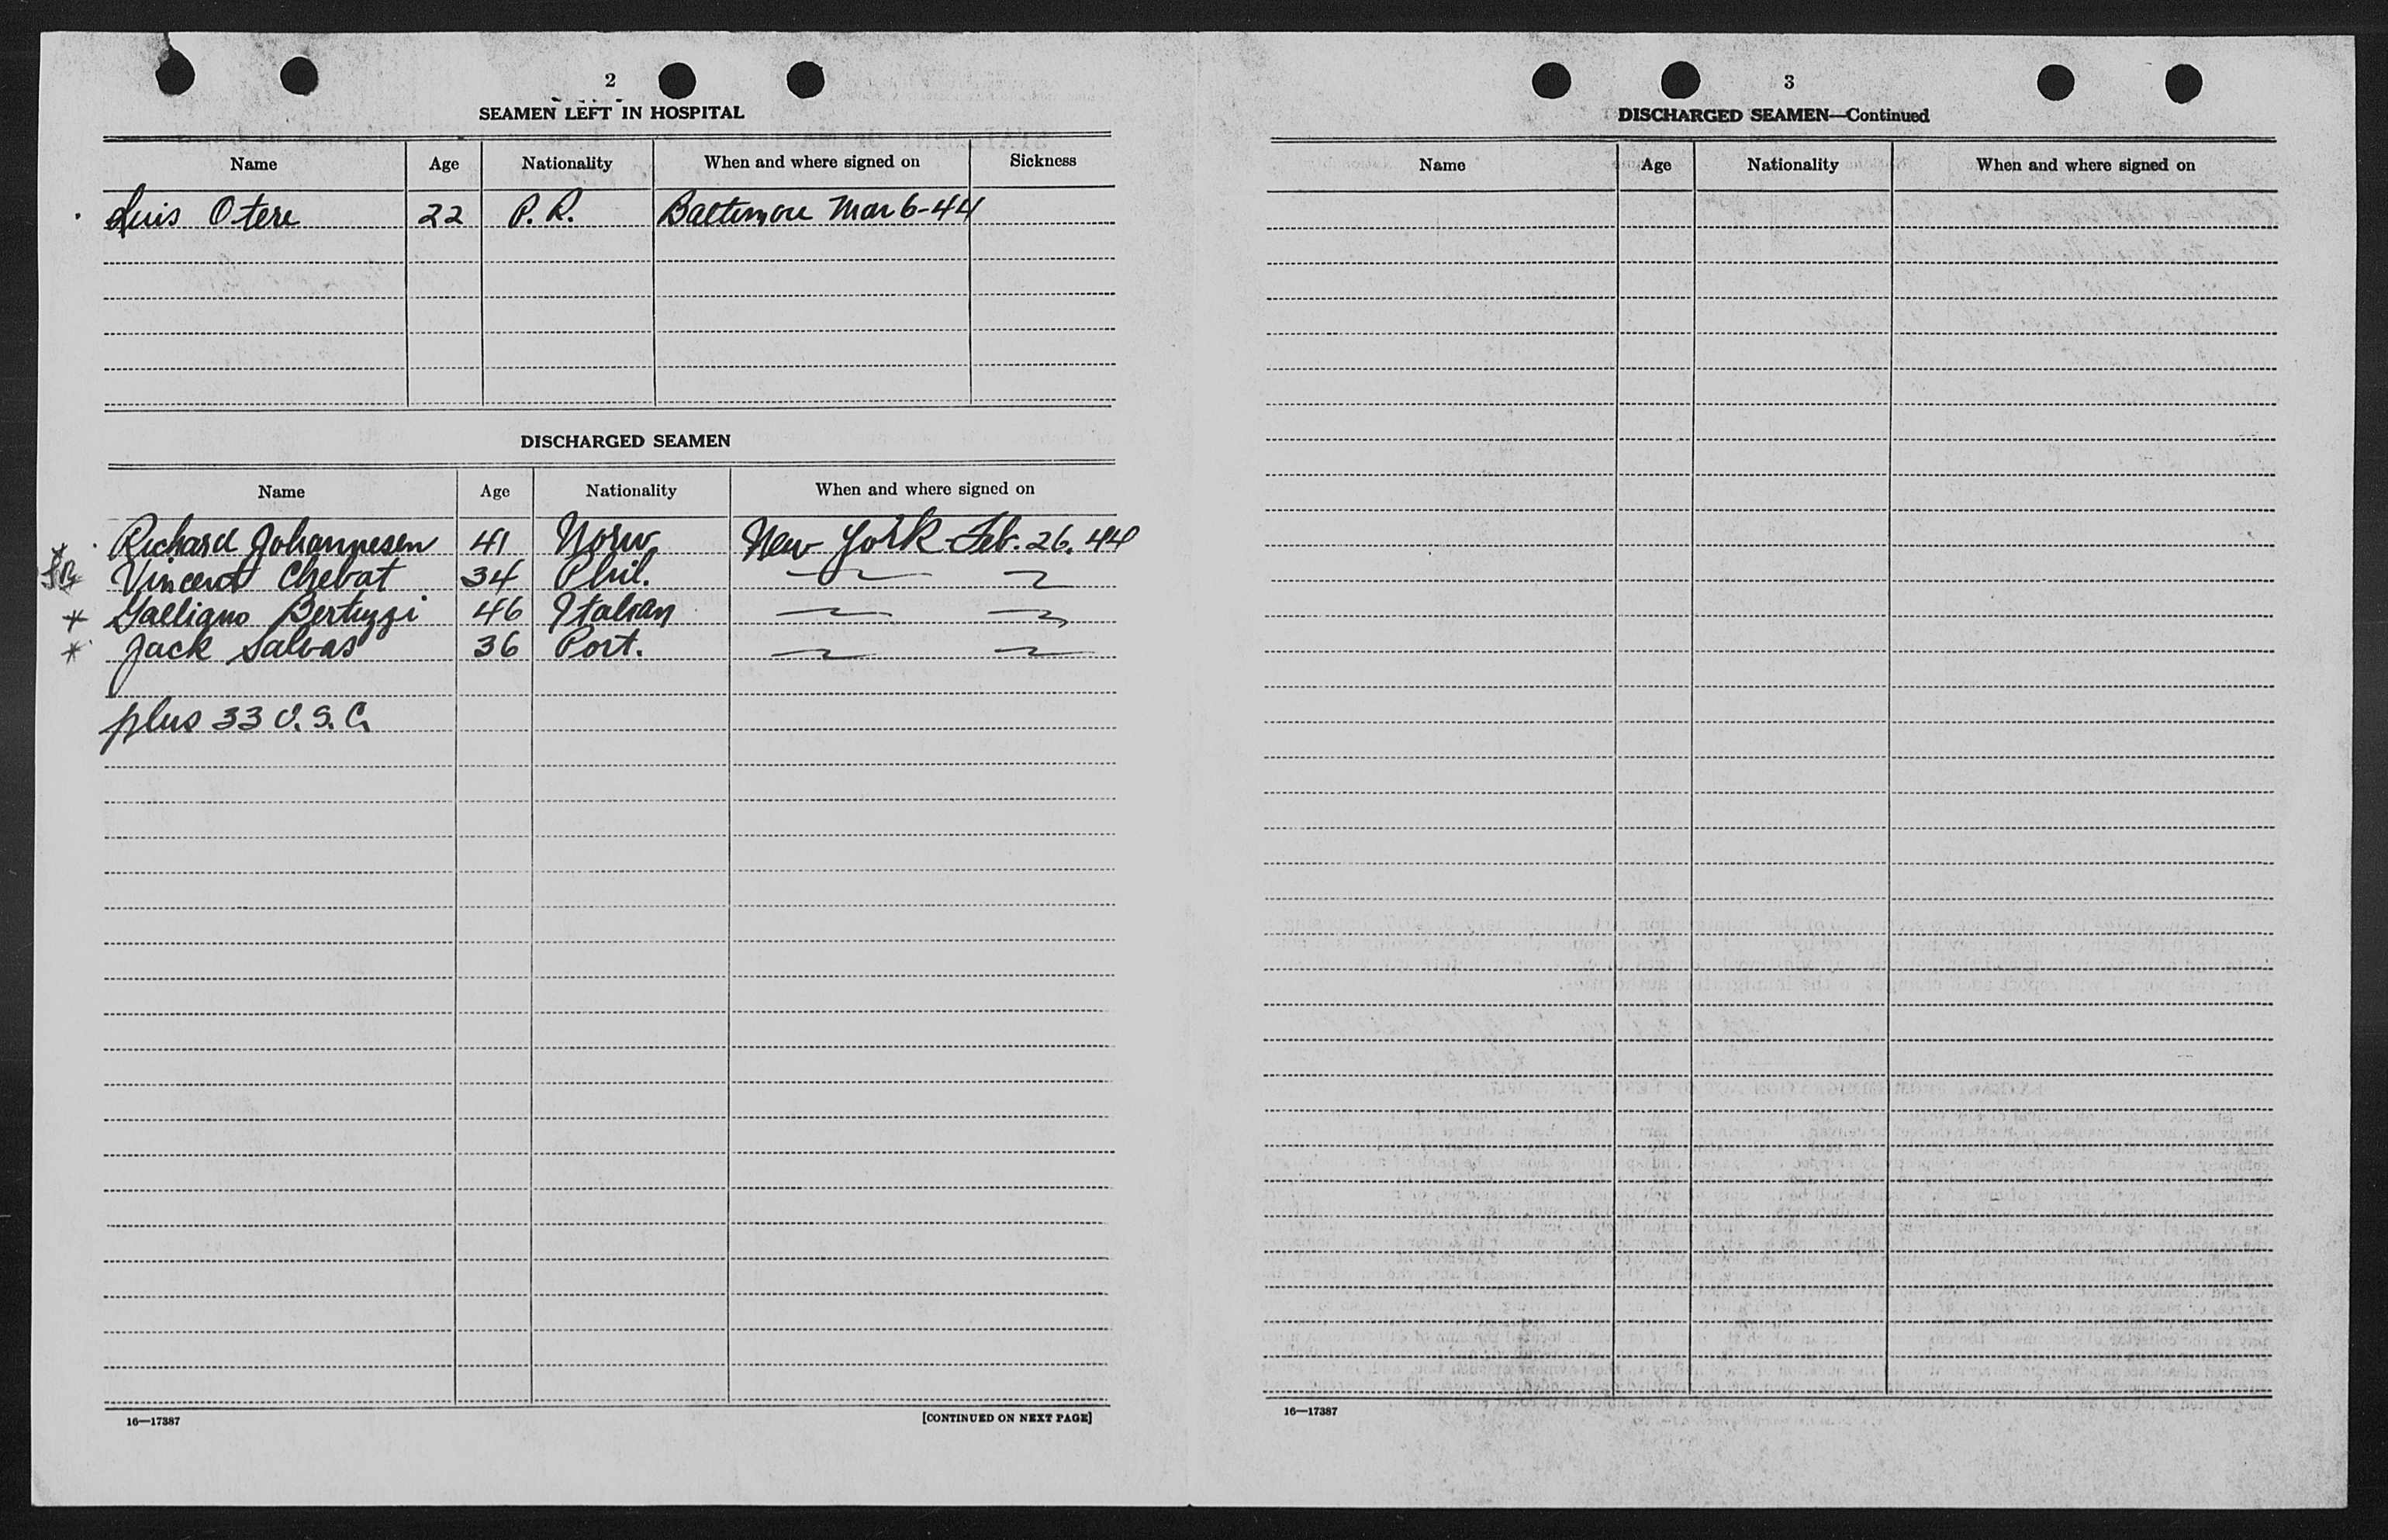 2
SEAMEN LEFT IN HOSPITAL
Name Age Nationality When and where signed on Sickness
Luis Otere 22 P.R. Baltimore Mar 6-44
DISCHARGED SEAMEN
Name Age Nationality When and where signed on
Richard Johannesen 41 Norw New York Feb. 26, 44
Vincent Chebat 34 Phil.
Galligno Bertuzzi 46 Italian
Jack Salvas 36 Port.
plus 33 U.S.C.
16—17387
[CONTINUED ON NEXT PAGE]
3
DISCHARGED SEAMEN—Continued
Name Age Nationality When and where signed on
16—17387